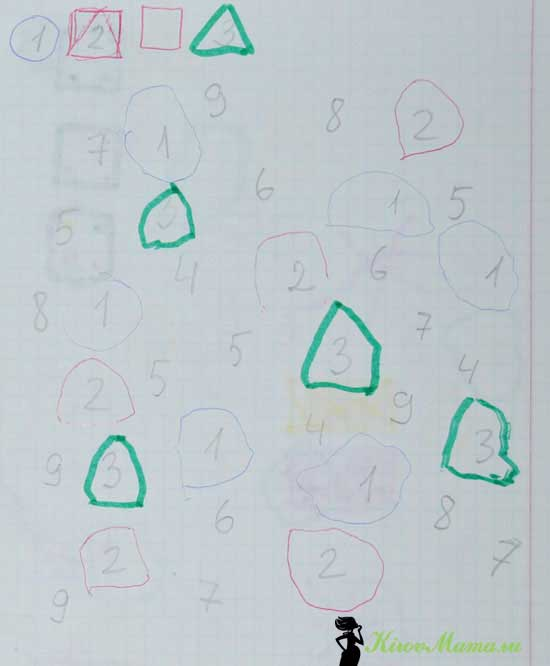 1 2 3
9
8 2
7 1
6
1 5
3
5
2 6 1
4
8 1
7
5 3
4
2 5
9
4
1 3
9 3
1
6 8
2 2 7
9 7
KirovMama.ru